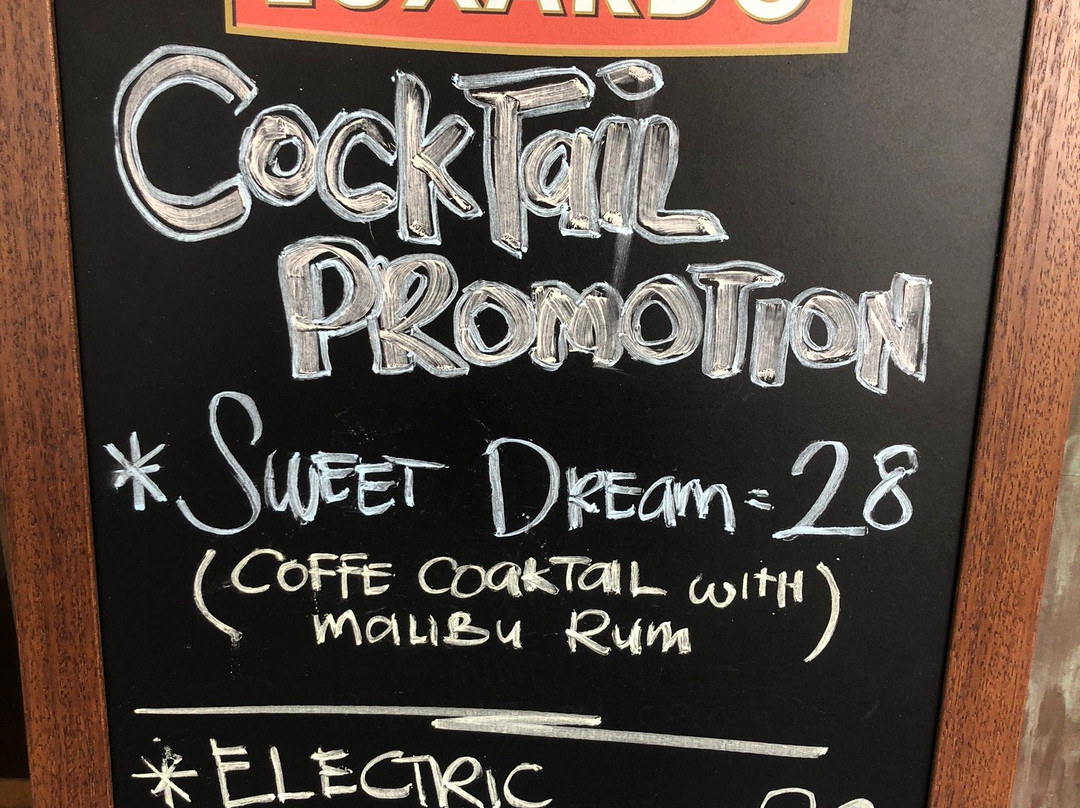 LUXARDO
CockTail
PROMOTION
* SWEET DREAM = 28
(COFFE COAKTAIL WITH
MALIBU RUM)
* ELECTRIC